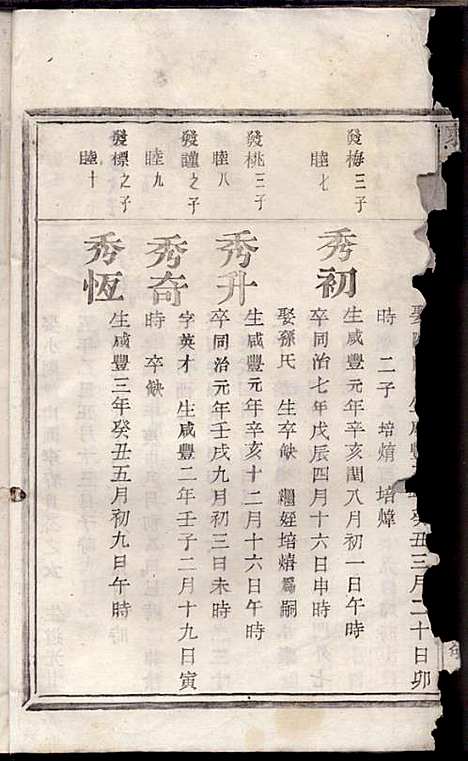 癸丑三月二十日卯
時 二子 培焴 培煒
發梅三子
睦七
秀初
生咸豐元年辛亥閏八月初一日午時
卒同治七年戊辰四月十六日申時
娶孫氏 生卒缺 繼姪培熺為嗣
發桃三子
睦八
秀升
生咸豐元年辛亥十二月十六日午時
卒同治元年壬戌九月初三日未時
發謹之子
睦九
秀奇
字英才 生咸豐二年壬子二月十九日寅
時 卒缺
發標之子
睦十
秀恆
生咸豐三年癸丑五月初九日午時